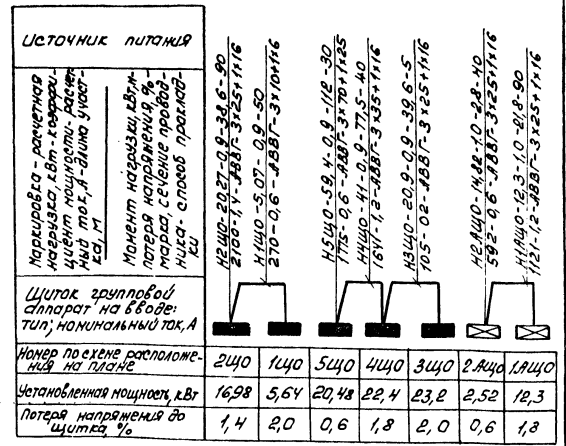 Источник питания
Маркировка-расчетная
нагрузка, кВт-коэффи-
циент мощности-расчет-
ный ток, А-длина участ-
ка, м
Момент нагрузки, кВт.м-
потеря напряжения, %-
марка, сечение провод-
ника-способ проклад-
ки
Н2ЩО-20,27-0,9-38,6-90
2100-1,4-АВВГ-3×25+1×16
Н1ЩО-5,07-0,9-50
270-0,6-АВВГ-3×10+1×6
Н5ЩО-59,4-0,9-112-30
1775-0,6-АВВГ-3×70+1×25
Н4ЩО-41-0,9-77,5-40
1641-1,2-АВВГ-3×35+1×16
Н3ЩО-20,9-0,9-39,6-5
105-02-АВВГ-3×25+1×16
Н2АЩО-14,82-1.0-2,8-40
592-0,6-АВВГ-3×25+1×16
Н1АЩО-12,3-1.0-21,8-90
1121-1,2-АВВГ-3×25+1×16
Щиток групповой
аппарат на вводе:
тип; номинальный ток, А
Номер по схеме расположе-
ния на плане
2ЩО 1ЩО 5ЩО 4ЩО 3ЩО 2АЩО 1АЩО
Установленная мощность, кВт
16,98 5,64 20,48 22,4 23,2 2,52 12,3
Потеря напряжения до
щитка, %
1,4 2,0 0,6 1,8 2,0 0,6 1,8